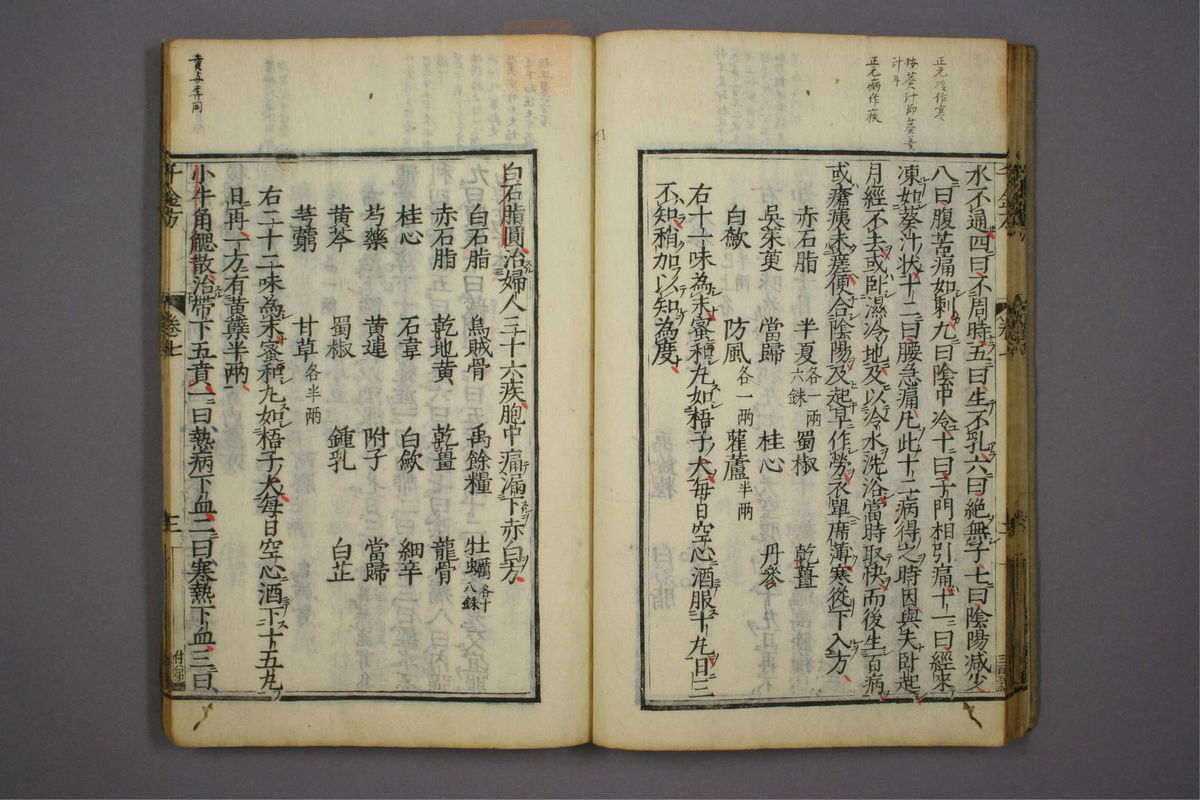 正元冷作寒
按葵汁即葵羹
汁耳
正元病作疾
水不通四曰不周時五曰生不乳六曰絕無子七曰陰陽減少
八曰腹苦痛如刺九曰陰中冷十曰子門相引痛十一曰經來
凍如葵汁狀十二曰腰急痛凡此十二病得之時因與夫臥起
月經不去或臥濕冷地及以冷水洗浴當時取快而後生百病
或瘡痍未瘥便合陰陽及起早作勞衣單席薄寒從下入方
赤石脂 半夏各一兩六銖 蜀椒 乾薑
吳茱萸 當歸 桂心 丹參
白歛 防風各一兩 雚蘆半兩
右十一味為末蜜和丸如梧子大每日空心酒服十丸日三
不知稍加以知為度
白石脂圓治婦人三十六疾胞中痛漏下赤白方
白石脂 烏賊骨 禹餘糧 牡蠣各十八銖
赤石脂 乾地黃 乾薑 龍骨
桂心 石韋 白歛 細辛
芍藥 黃連 附子 當歸
黃芩 蜀椒 鍾乳 白芷
芎藭 甘草各半兩
右二十二味為末蜜和丸如梧子大每日空心酒下十五丸
日再一方有黃蘗半兩
小牛角䚡散治帶下五賁一曰熱病下血二曰寒熱下血三曰
賁與奔同
千金方
卷七
三